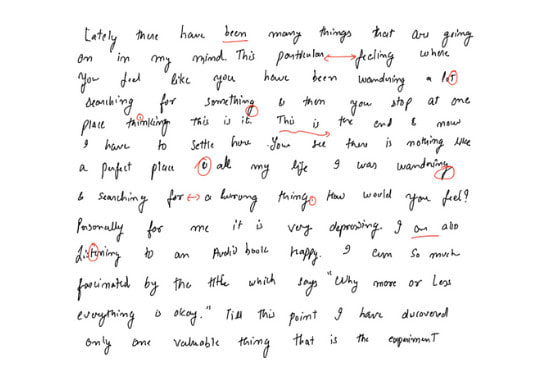 Lately there have been many things that are going
on in my mind. This particular feeling where
you feel like you have been wandering a lot
searching for something & then you stop at one
place thinking this is it. This is the end & now
I have to settle here. You see there is nothing like
a perfect place & all my life I was wandering
& searching for a wrong thing. How would you feel?
Personally for me it is very depressing. I am also
Listening to an Audio book happy. I am so much
fascinated by the title which says "Why more or Less
everything is okay." Till this point I have discovered
only one valuable thing that is the experiment